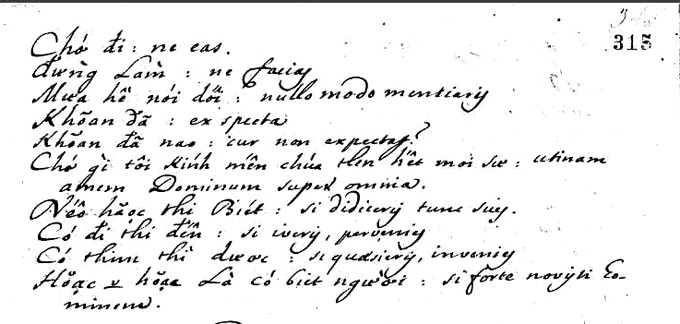 315
Chớ đi : ne eas.
đừng Làm : ne facias
Mựa hề nói dối : nullo modo mentiaris
Khoan đã : expecta
Khoan đã nao : cur non expectas?
Chớ gì tôi kính mến chúa tlen hết mọi sự : utinam
amem Dominum super omnia.
Nếo hặoc thì Biết : si didiceris tunc scies.
Có đi thì đến : si iveris, pervenies
Có thìm thì được : si quæsieris, invenies
Hoặc là có biết người : si forte novisti ho-
minem.